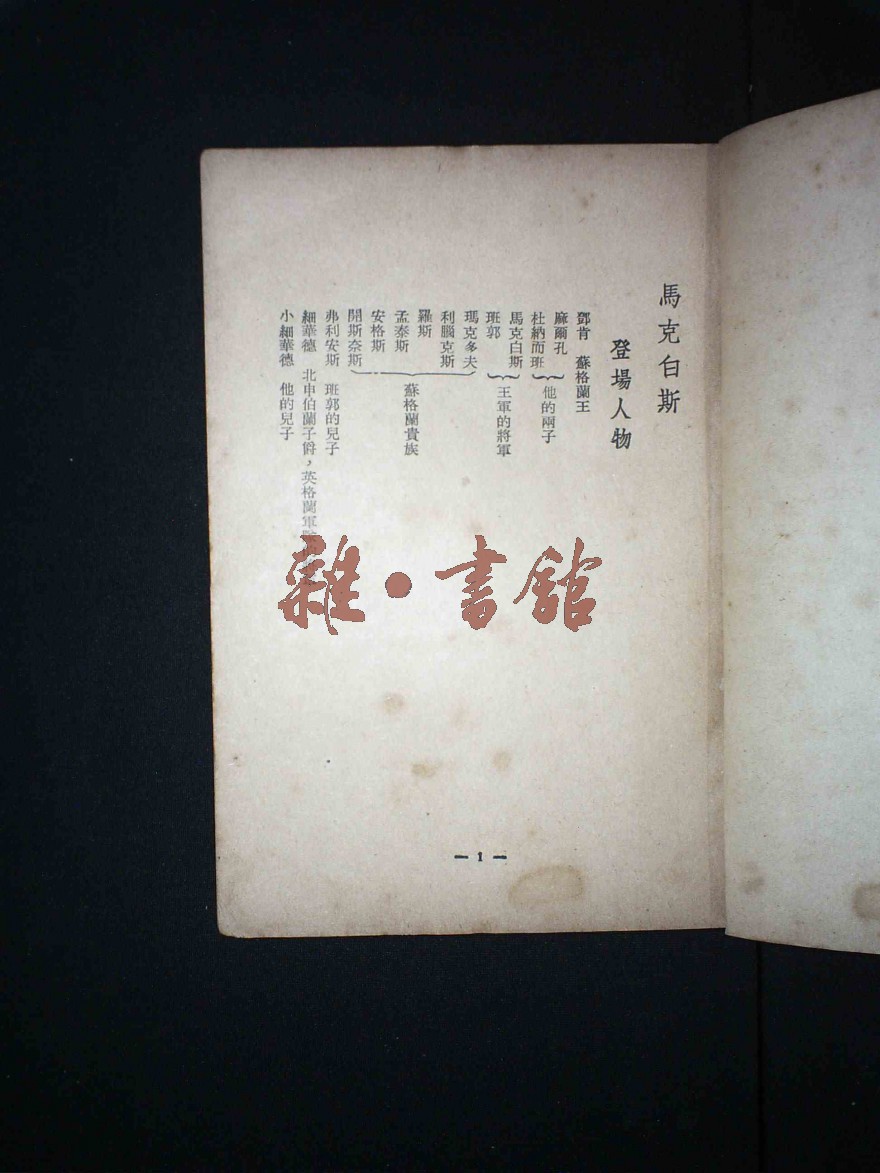 馬克白斯
登場人物
鄧肯 蘇格蘭王
麻爾孔
杜納而班
他的兩子
馬克白斯
班郭
王軍的將軍
瑪克多夫
利腦克斯
羅斯
孟泰斯
安格斯
開斯奈斯
蘇格蘭貴族
弗利安斯 班郭的兒子
細華德 北申伯蘭子爵，英格蘭軍
小細華德 他的兒子
雜·書館
— 1 —